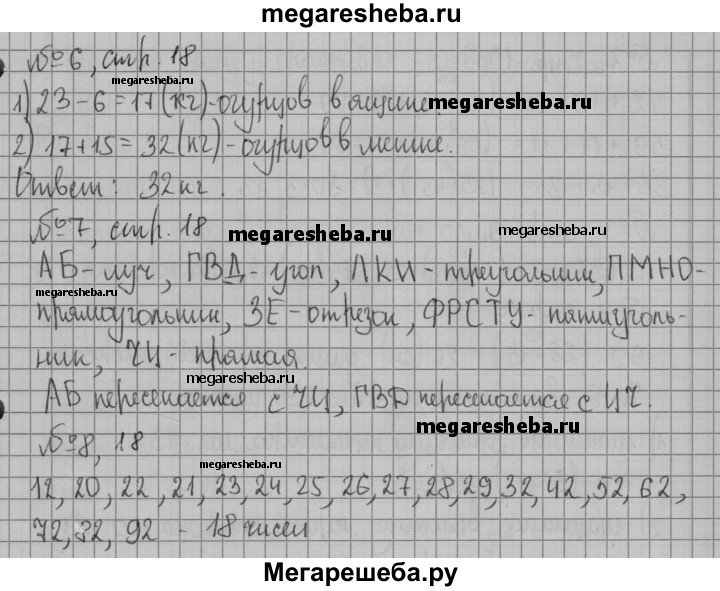 megaresheba.ru
№6, стр. 18
megaresheba.ru
1) 23-6=17(кг)-огурцов в ящике.
megaresheba.ru
2) 17+15=32(кг)-огурцов в мешке.
Ответ: 32кг.
№7, стр. 18
megaresheba.ru
megaresheba.ru
АБ-луч, ГВД-угол, ЛКИ-треугольник, ПМНО-
megaresheba.ru
прямоугольник, ЗЕ-отрезок, ФРСТУ-пятиуголь-
ник, ЧЦ-прямая.
megaresheba.ru
АБ пересекается с ЧЦ, ГВД пересекается с ЦЧ.
megaresheba.ru
№8, 18
megaresheba.ru
12, 20, 22, 21, 23, 24, 25, 26, 27, 28, 29, 32, 42, 52, 62,
72, 82, 92 - 18 чисел
Мегарешеба.ру